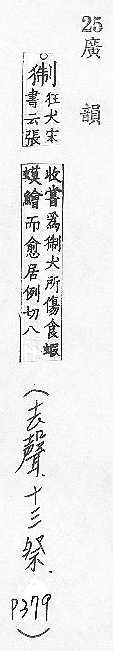 25 廣韻
○猘 狂犬宋
書云張
收嘗爲猘犬所傷食蝦
蟆鱠而愈居例切八
(去聲.十三祭.
P379)